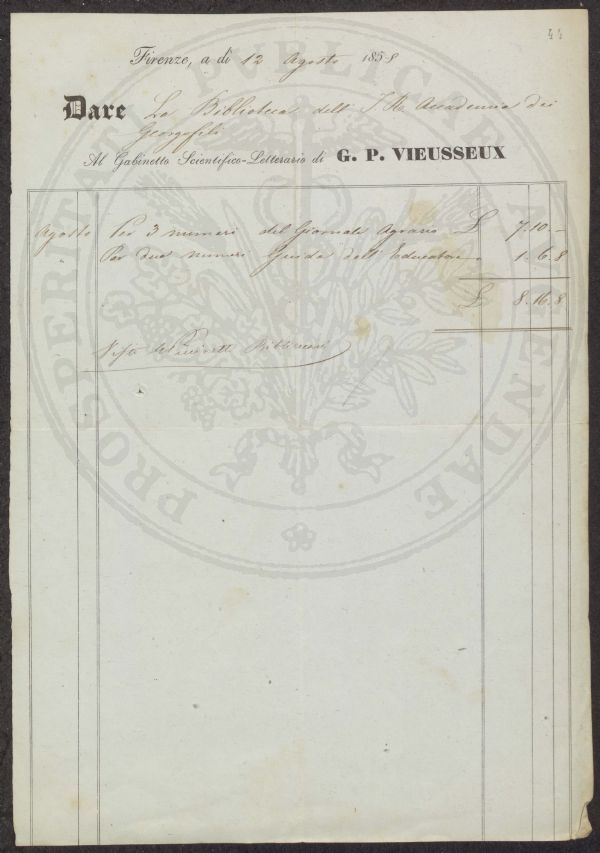 44
Firenze, a dì 12 Agosto 1858
Dare La Biblioteca dell' I. R. Accademia dei
Georgofili
Al Gabinetto Scientifico-Letterario di G. P. VIEUSSEUX
Agosto Per 3 numeri del Giornale Agrario £ 7. 10. -
Per due numeri Guida dell' Educatore 1. 6. 8
£ 8. 16. 8
Visto Bibliotecario
PROSPERITATI PVBLICAE AVGENDAE